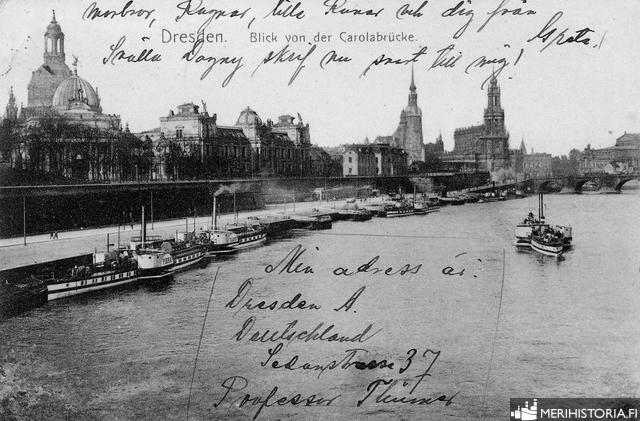 morbror, Ragnar, lille Runar och dig från
Greta!
Dresden. Blick von der Carolabrücke.
Snälla Dagny skrif nu snart till mig!
Min adress är:
Dresden A.
Deutschland
Sedanstrasse 37
Professor Thümer
MERIHISTORIA.FI